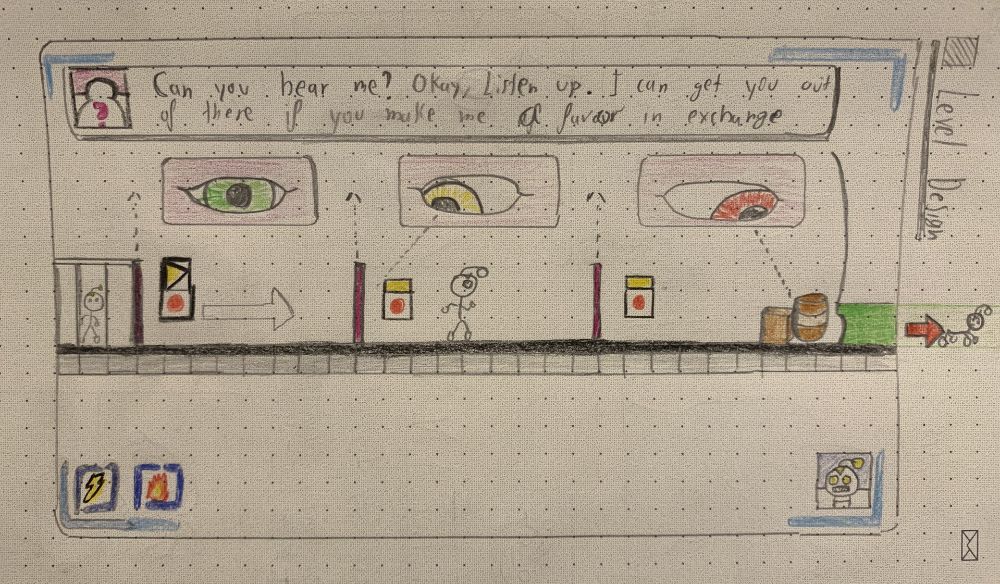 Can you hear me? Okay, Listen up. I can get you out
of there if you make me a favor in exchange
?
Level Design